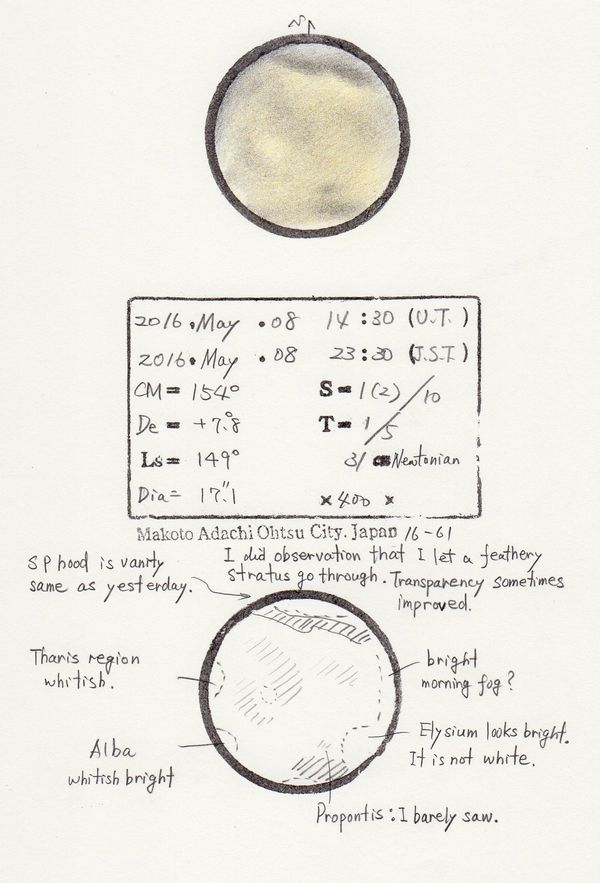 2016.May .08 14:30 (U.T.)
2016.May .08 23:30 (J.S.T)
CM= 154° S=1(2)/10
De = +7.°8 T=1/5
Ls= 149° 31 cmNewtonian
Dia= 17."1 ×400 ×
Makoto Adachi Ohtsu City. Japan 16-61
SP hood is vanity
same as yesterday.
I did observation that I let a feathery
stratus go through. Transparency sometimes
improved.
Tharis region
whitish.
bright
morning fog?
Alba
whitish bright
Elysium looks bright.
It is not white.
Propontis: I barely saw.